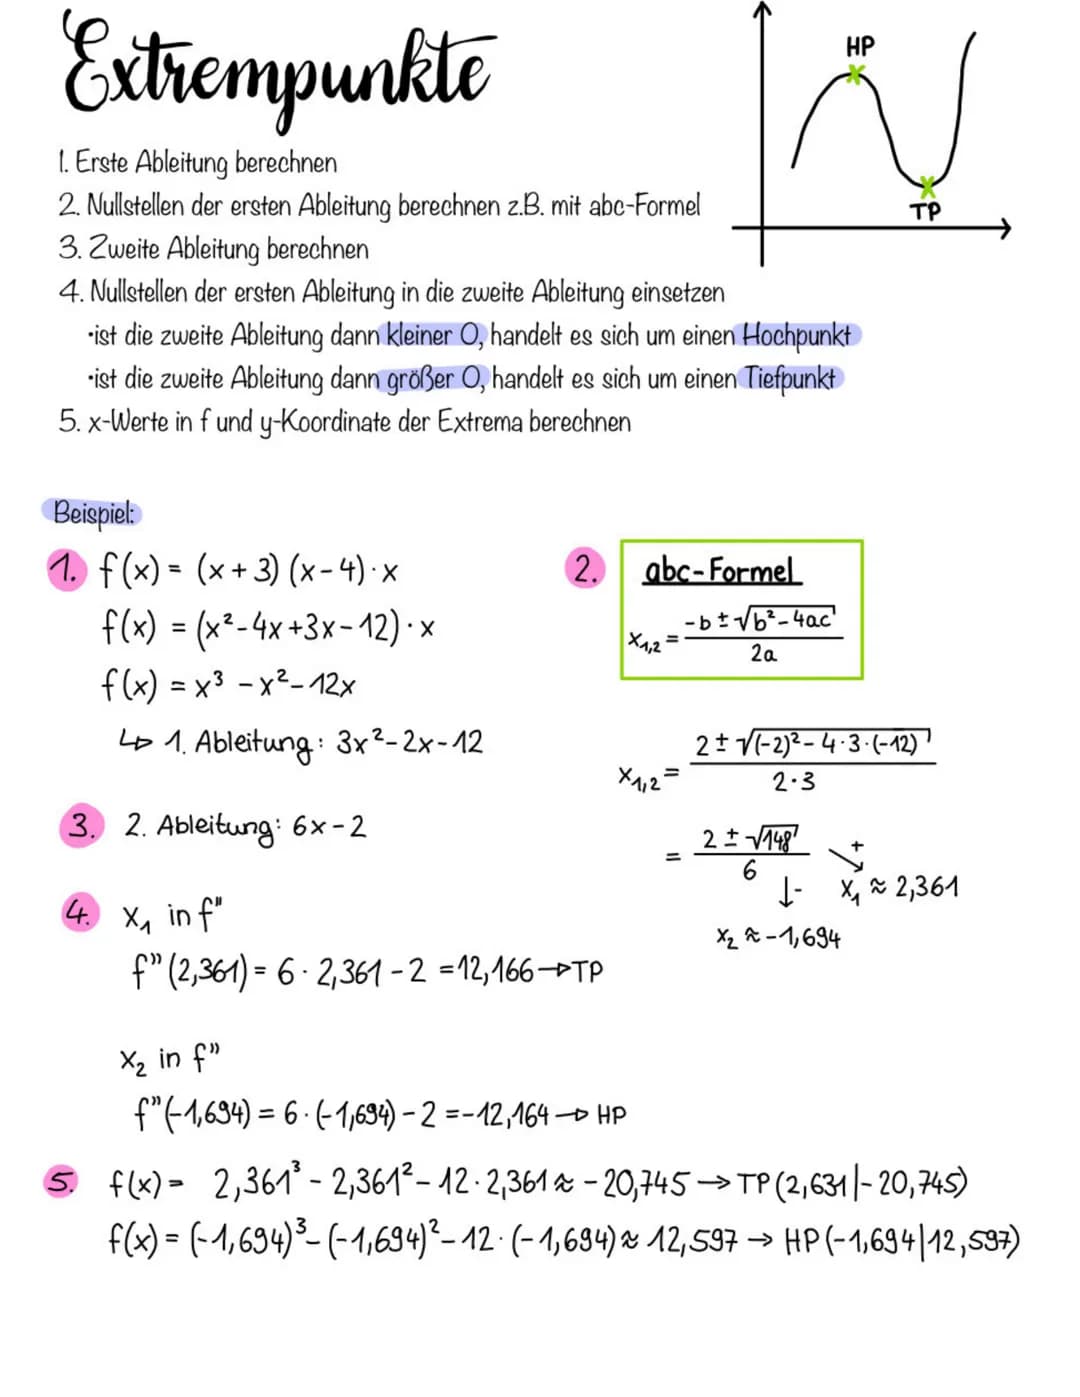 Extrempunkte
HP
TP
1. Erste Ableitung berechnen
2. Nullstellen der ersten Ableitung berechnen z.B. mit abc-Formel
3. Zweite Ableitung berechnen
4. Nullstellen der ersten Ableitung in die zweite Ableitung einsetzen
•ist die zweite Ableitung dann kleiner 0, handelt es sich um einen Hochpunkt
•ist die zweite Ableitung dann größer 0, handelt es sich um einen Tiefpunkt
5. x-Werte in f und y-Koordinate der Extrema berechnen
Beispiel:
1. f(x) = (x+3)(x-4)·x
f(x) = (x²-4x+3x-12)·x
f(x) = x³ -x²-12x
↳ 1. Ableitung: 3x²-2x-12
2. abc-Formel
x₁,₂ = (-b±√(b²-4ac))/(2a)
x₁,₂ = (2±√((-2)²-4·3·(-12)))/(2·3)
= (2±√148)/6
+
x₁ ≈ 2,361
↓-
x₂ ≈ -1,694
3. 2. Ableitung: 6x-2
4. x₁ in f"
f"(2,361) = 6·2,361-2 =12,166→TP
x₂ in f"
f"(-1,694) = 6·(-1,694)-2 =-12,164→ HP
5. f(x)= 2,361³-2,361²-12·2,361≈-20,745→TP(2,631|-20,745)
f(x) = (-1,694)³-(-1,694)²-12·(-1,694)≈12,597→ HP(-1,694|12,597)